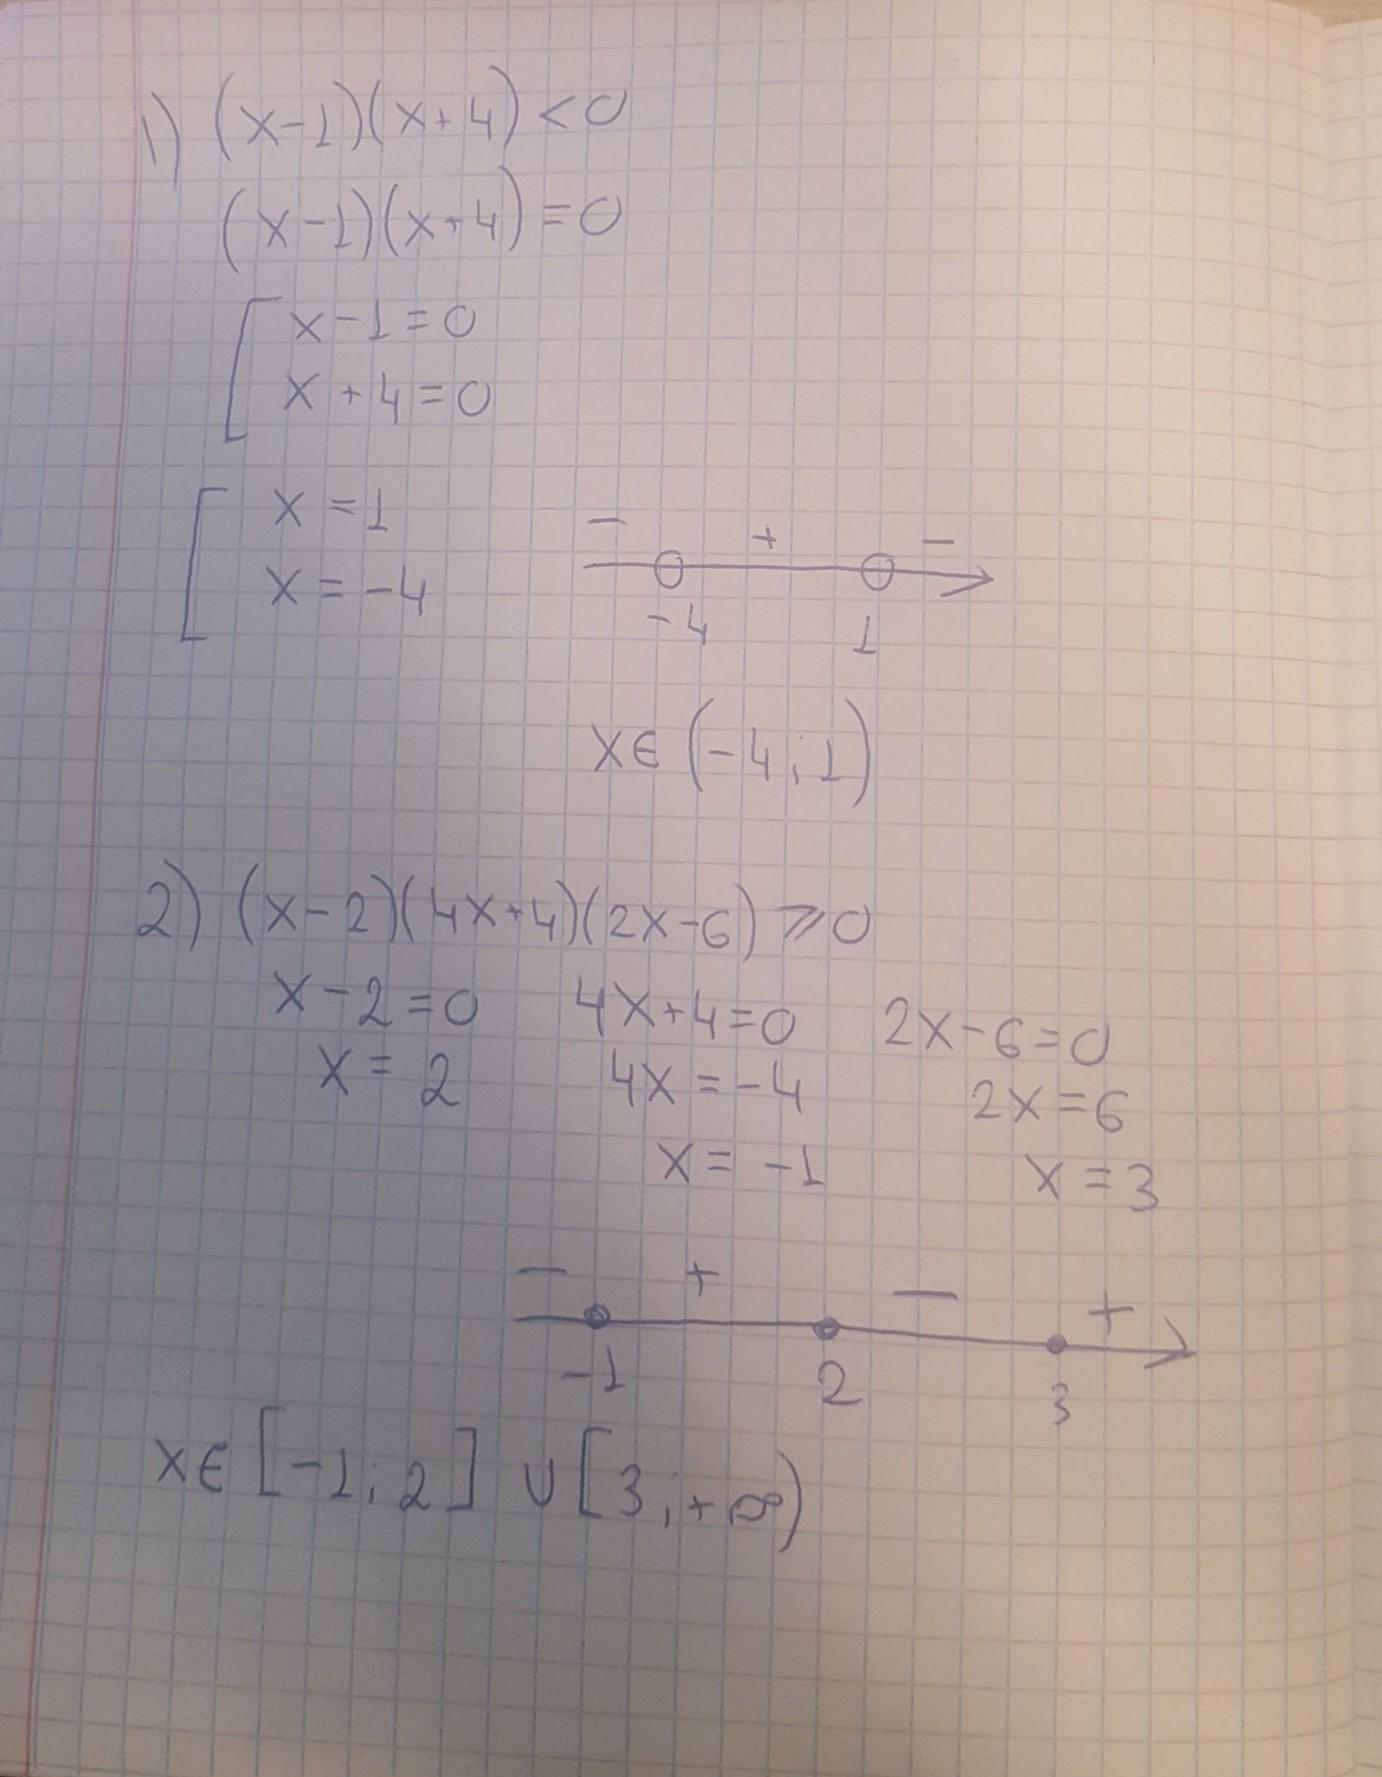 1) (x-1)(x+4)<0
(x-1)(x+4)=0
x-1=0
x+4=0
x=1
x=-4
- + -
-4 1
x∈(-4;1)
2) (x-2)(4x+4)(2x-6)⩾0
x-2=0 4x+4=0 2x-6=0
x=2 4x=-4 2x=6
x=-1 x=3
- + - +
-1 2 3
x∈[-1;2]∪[3;+∞)